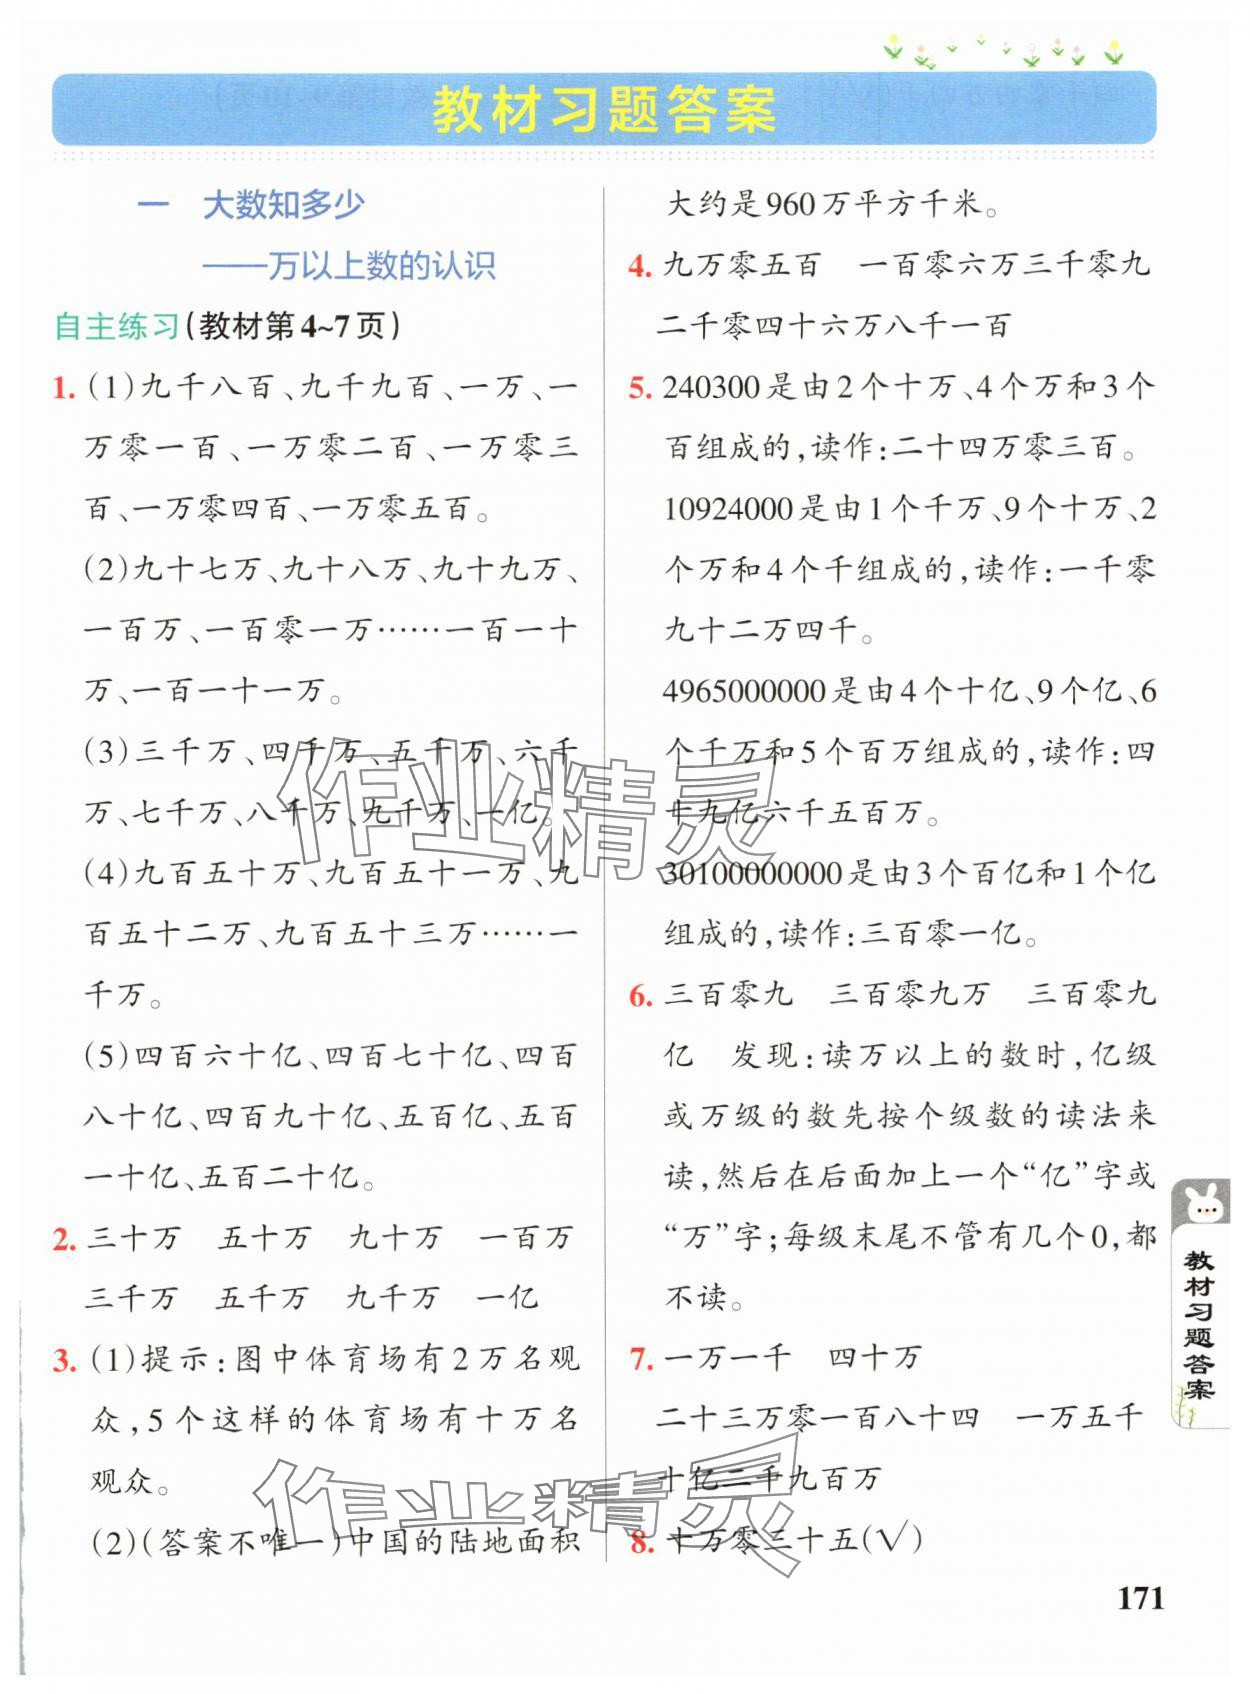 教材习题答案
一 大数知多少
——万以上数的认识
自主练习(教材第4~7页)
1. (1)九千八百、九千九百、一万、一
万零一百、一万零二百、一万零三
百、一万零四百、一万零五百。
(2)九十七万、九十八万、九十九万、
一百万、一百零一万……一百一十
万、一百一十一万。
(3)三千万、四千万、五千万、六千
万、七千万、八千万、九千万、一亿。
(4)九百五十万、九百五十一万、九
百五十二万、九百五十三万……一
千万。
(5)四百六十亿、四百七十亿、四百
八十亿、四百九十亿、五百亿、五百
一十亿、五百二十亿。
2. 三十万 五十万 九十万 一百万
三千万 五千万 九千万 一亿
3. (1)提示:图中体育场有2万名观
众,5个这样的体育场有十万名
观众。
(2)(答案不唯一)中国的陆地面积
大约是960万平方千米。
4. 九万零五百 一百零六万三千零九
二千零四十六万八千一百
5. 240300是由2个十万、4个万和3个
百组成的,读作:二十四万零三百。
10924000是由1个千万、9个十万、2
个万和4个千组成的,读作:一千零
九十二万四千。
4965000000是由4个十亿、9个亿、6
个千万和5个百万组成的,读作:四
十九亿六千五百万。
30100000000是由3个百亿和1个亿
组成的,读作:三百零一亿。
6. 三百零九 三百零九万 三百零九
亿 发现:读万以上的数时,亿级
或万级的数先按个级数的读法来
读,然后在后面加上一个“亿”字或
“万”字;每级末尾不管有几个0,都
不读。
7. 一万一千 四十万
二十三万零一百八十四 一万五千
十亿二千九百万
8. 十万零三十五(√)
教材习题答案
171
作业精灵
作业精灵